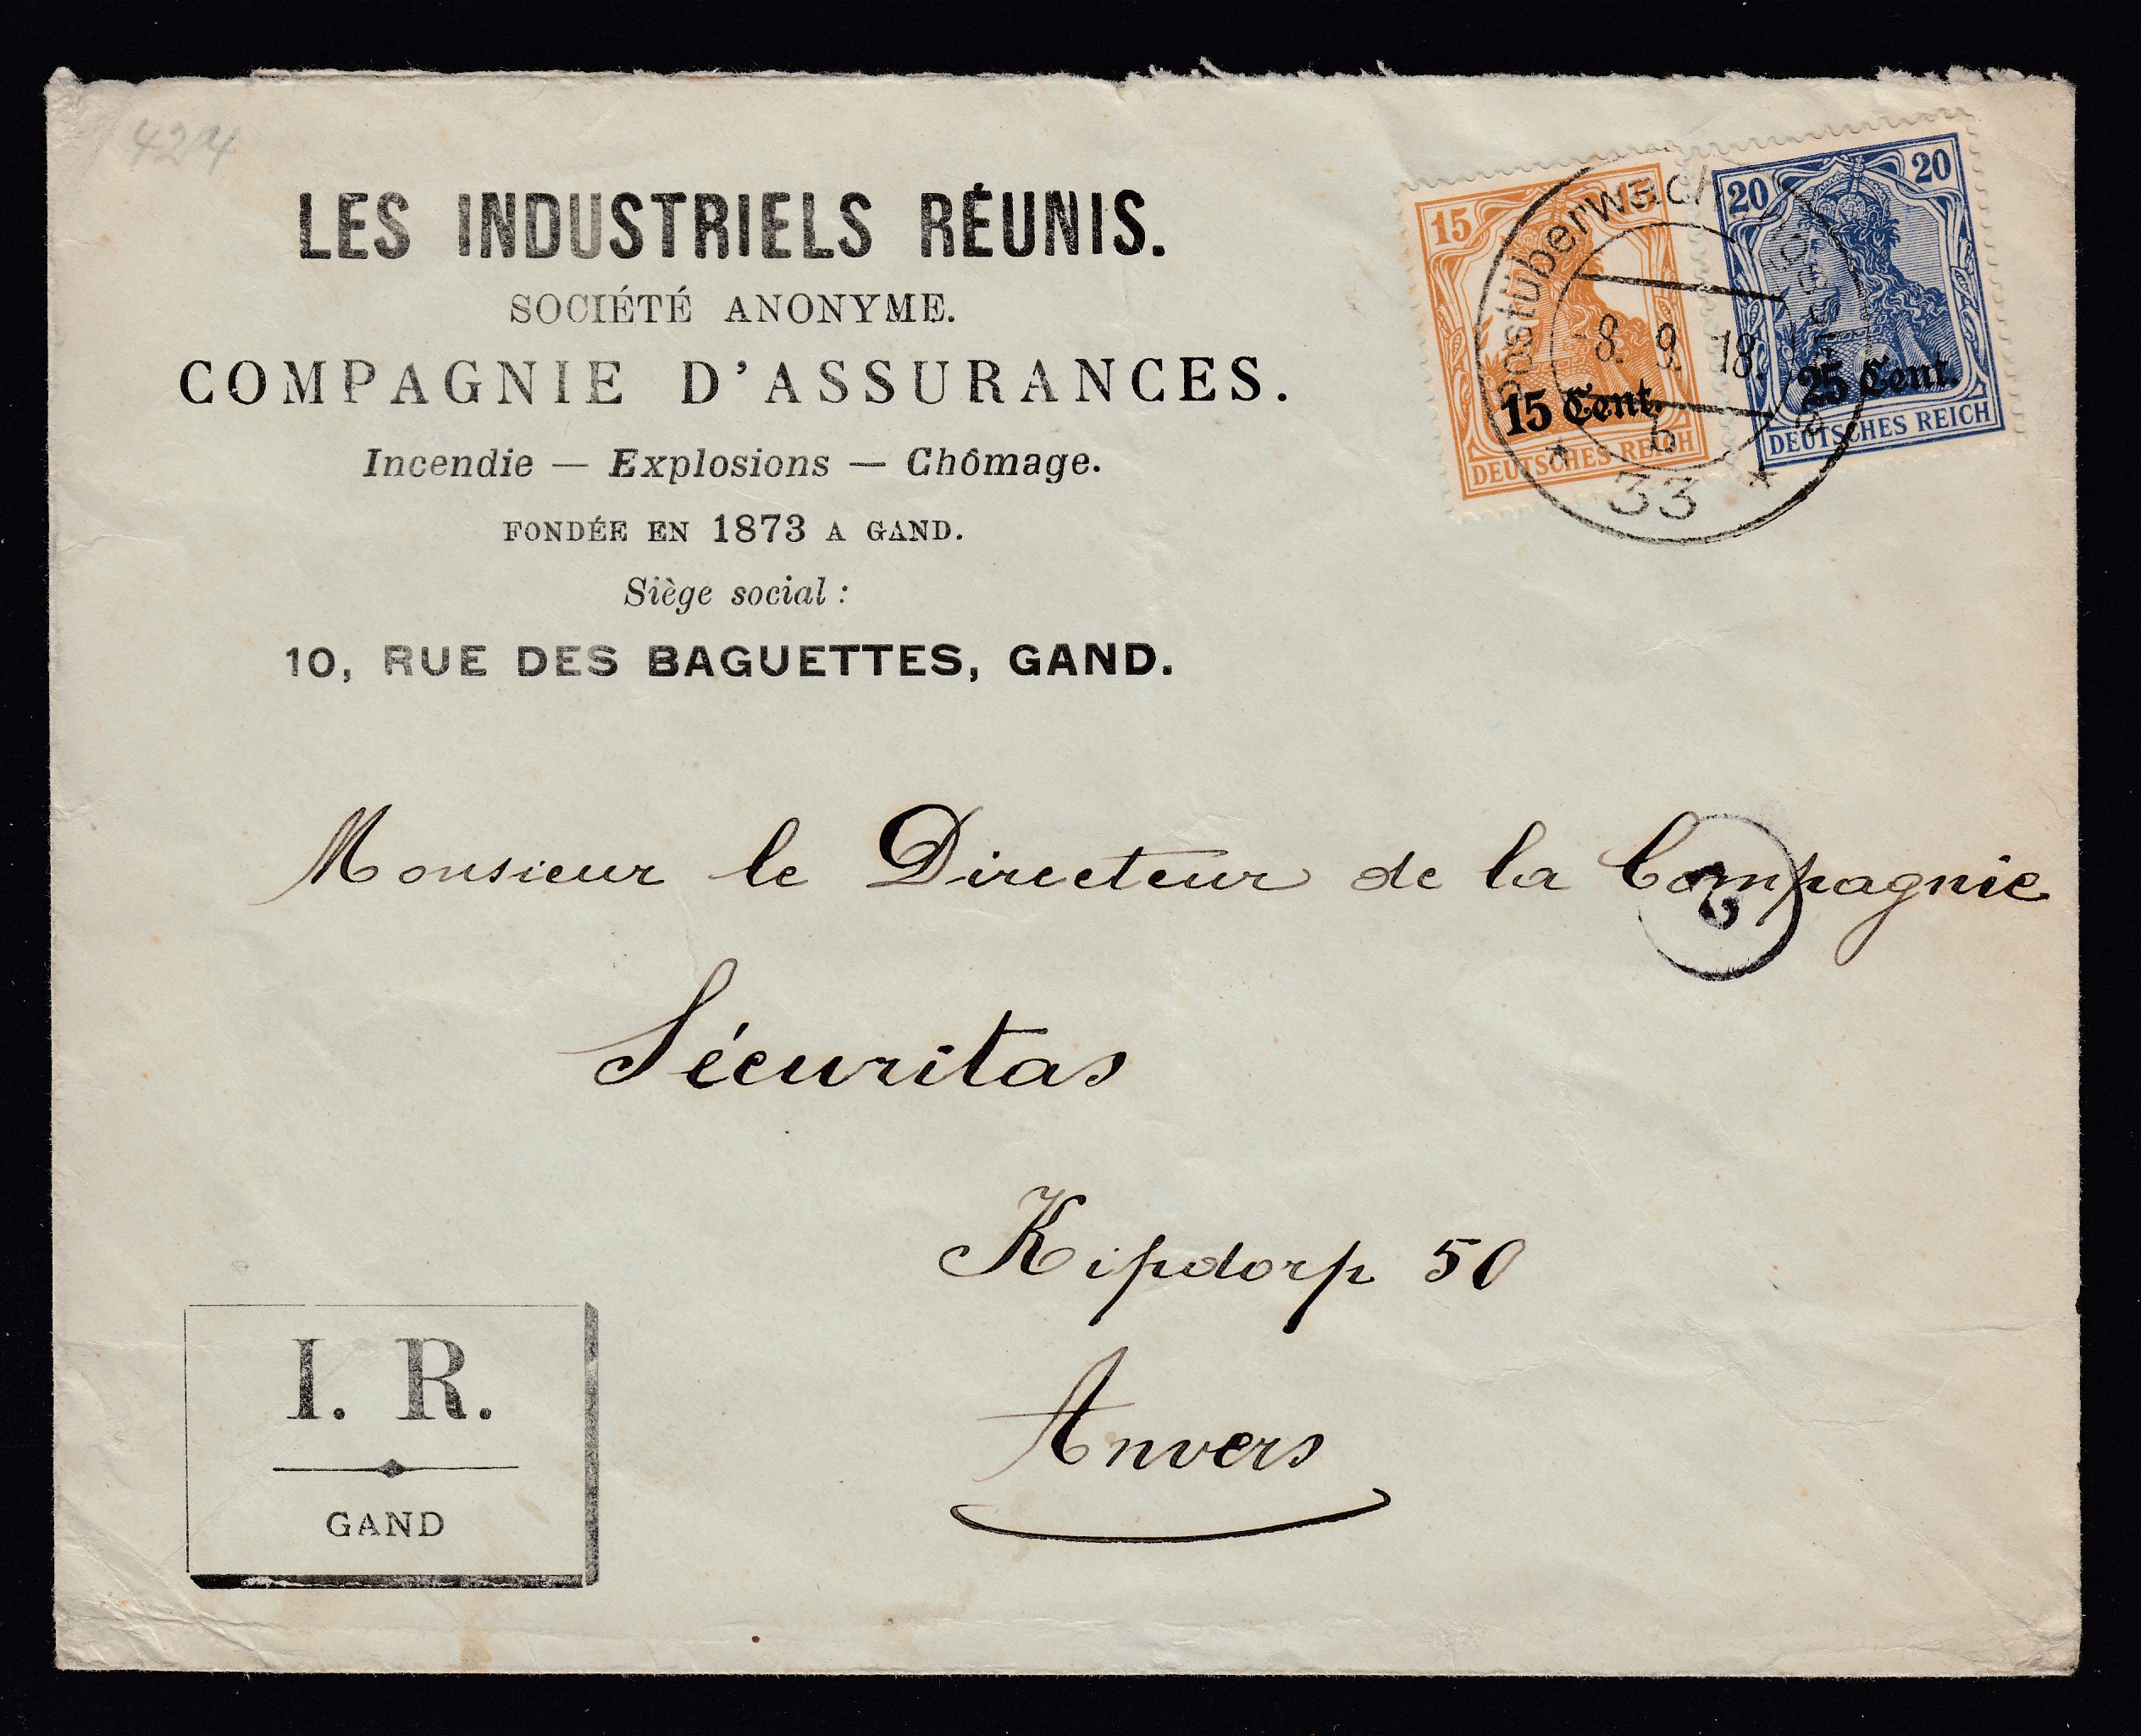 424
LES INDUSTRIELS RÉUNIS.
SOCIÉTÉ ANONYME.
COMPAGNIE D'ASSURANCES.
Incendie — Explosions — Chômage.
FONDÉE EN 1873 A GAND.
Siège social :
10, RUE DES BAGUETTES, GAND.
15 15
15 Cent.
DEUTSCHES REICH
20 20
25 Cent.
DEUTSCHES REICH
-8. 9. 18.
b
* 33 *
Monsieur le Directeur de la Compagnie
2
Sécuritas
Kipdorp 50
Anvers
I. R.
GAND